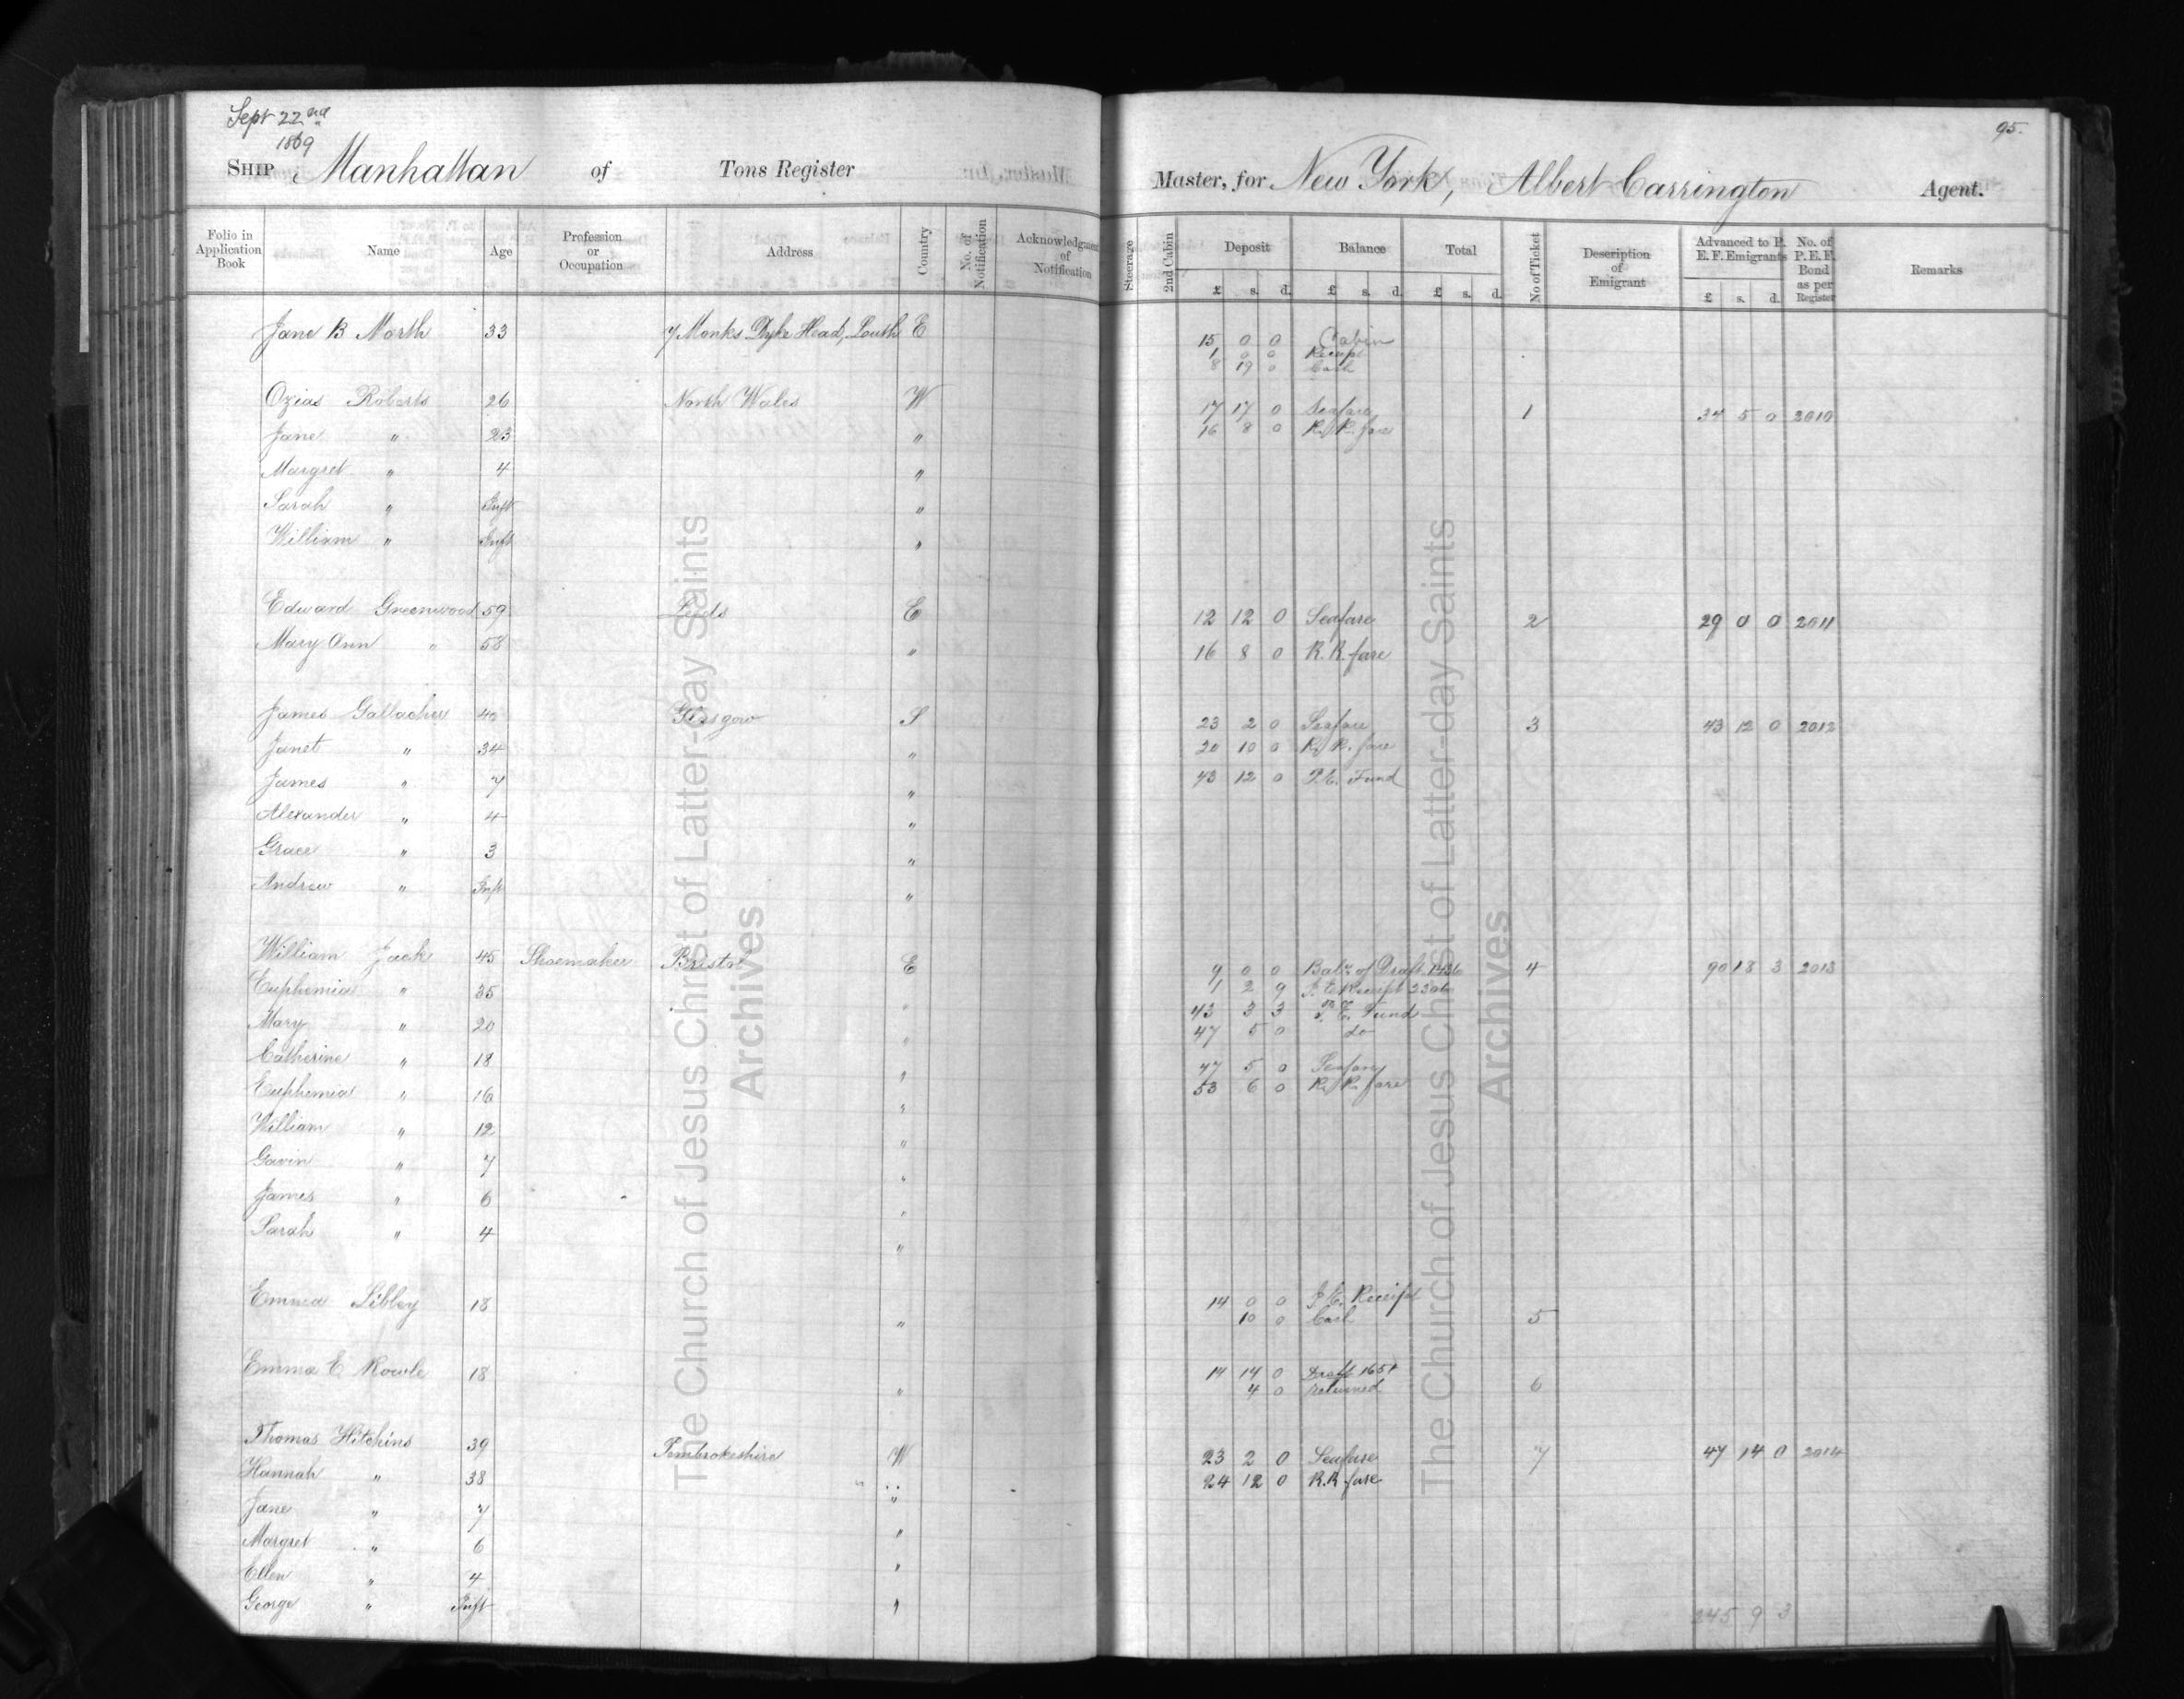 Sept 22nd
1869
95.
SHIP Manhattan of Tons Register
Master, for New York, Albert Carrington Agent.
Folio in Application Book Name Age Profession or Occupation Address Country No. of Notification Acknowledgment of Notification
Steerage 2nd Cabin Deposit £ s. d. Balance £ s. d. Total £ s. d. No of Ticket Description of Emigrant Advanced to P. E. F. Emigrants £ s. d. No. of P. E. F. Bond as per Register Remarks
Jane B North 33 7 Monks Dyke Head, Louth E 15 0 0 Cabin
1 0 0 Receipt
8 19 0 Cash
Ozias Roberts 26 North Wales W 17 17 0 Seafare 1 34 5 0 2010
Jane " 23 " 16 8 0 R. R. fare
Margret " 4 "
Sarah " Inft "
William " Inft "
Edward Greenwood 59 Leeds E 12 12 0 Seafare 2 29 0 0 2011
Mary Ann " 58 " 16 8 0 R. R. fare
James Gallacher 40 Glasgow S 23 2 0 Seafare 3 43 12 0 2012
Janet " 34 " 20 10 0 R. R. fare
James " 7 " 43 12 0 P.E. Fund
Alexander " 4 "
Grace " 3 "
Andrew " Inft "
William Jack 45 Shoemaker Bristol E 9 0 0 Balce of Draft 4 90 18 3 2013
Euphemia " 35 " 1 2 9 Receipt
Mary " 20 " 43 3 3 P. E. Fund
47 5 0 do
Catherine " 18 " 47 5 0 Seafare
Euphemia " 16 " 53 6 0 R. R. fare
William " 12 "
Gavin " 7 "
James " 6 "
Sarah " 4 "
Emma Libbey 18 " 14 0 0 Receipt
10 0 Cash 5
Emma E Rowle 18 " 14 14 0 Draft
4 0 returned 6
Thomas Hitchins 39 Pembrokeshire W 23 2 0 Seafare 7 47 14 0 2014
Hannah " 38 " 24 12 0 R.R. fare
Jane " 7 "
Margret " 6 "
Ellen " 4 "
George " Inft "
245 9 3
The Church of Jesus Christ of Latter-day Saints
Archives
The Church of Jesus Christ of Latter-day Saints
Archives